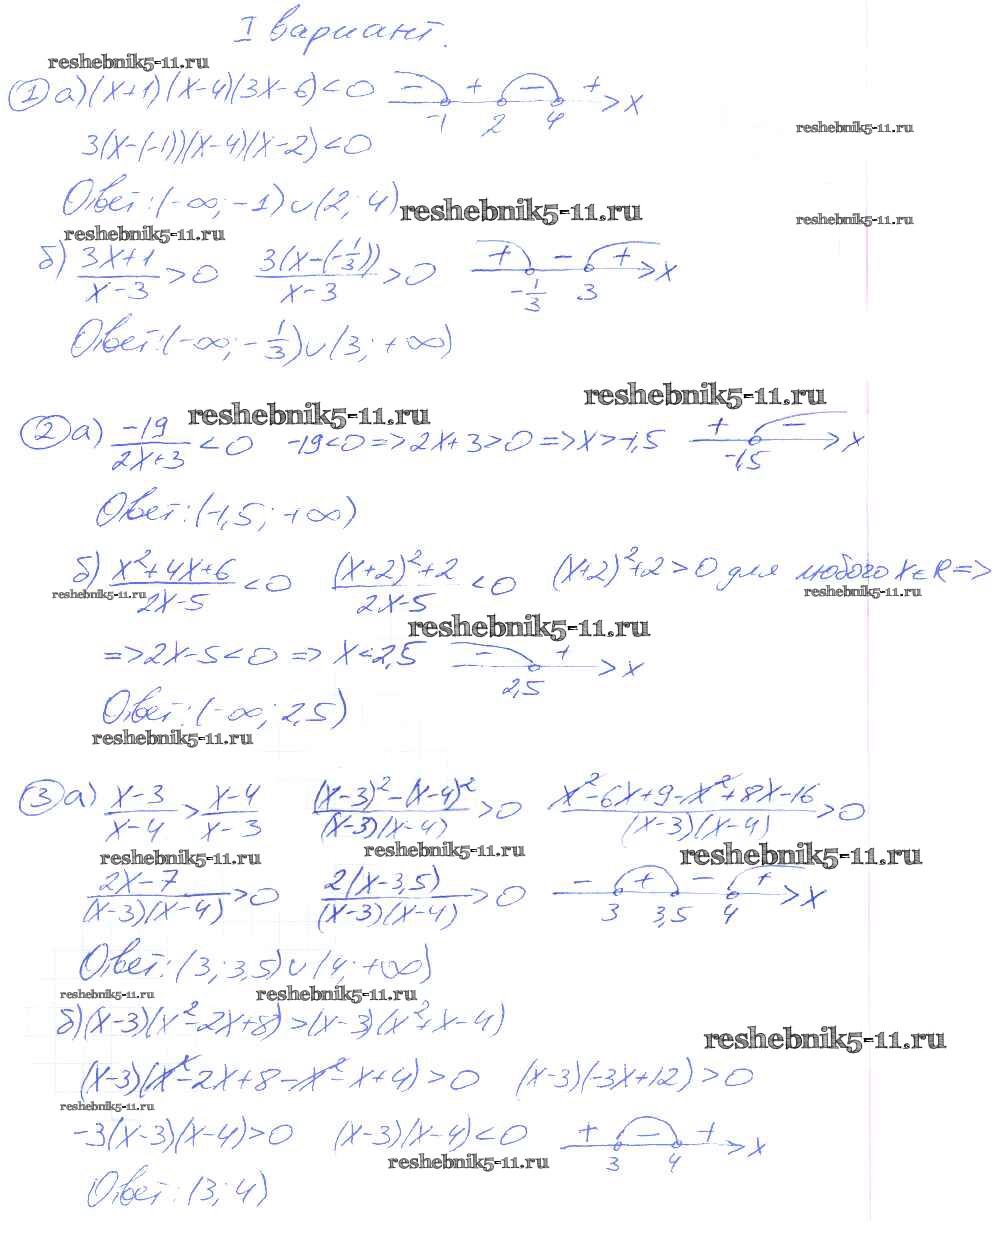 I вариант.
reshebnik5-11.ru
① а) (x+1)(x-4)(3x-6)<0 - + - + x
-1 2 4
reshebnik5-11.ru
3(x-(-1))(x-4)(x-2)<0
Ответ: (-∞; -1)∪(2; 4)
reshebnik5-11.ru
reshebnik5-11.ru
reshebnik5-11.ru
б) (3x+1)/(x-3)>0 (3(x-(-1/3)))/(x-3)>0 + - + x
-1/3 3
Ответ: (-∞; -1/3)∪(3; +∞)
reshebnik5-11.ru
reshebnik5-11.ru
② а) -19/(2x+3)<0 -19<0=>2x+3>0=>x>-1,5 + - x
-1,5
Ответ: (-1,5; +∞)
б) (x²+4x+6)/(2x-5)<0 ((x+2)²+2)/(2x-5)<0 (x+2)²+2>0 для любого x∈R=>
reshebnik5-11.ru
reshebnik5-11.ru
reshebnik5-11.ru
=>2x-5<0 => x<2,5 - + x
2,5
Ответ: (-∞; 2,5)
reshebnik5-11.ru
③ а) (x-3)/(x-4)>(x-4)/(x-3) ((x-3)²-(x-4)²)/((x-3)(x-4))>0 (x²-6x+9-x²+8x-16)/((x-3)(x-4))>0
reshebnik5-11.ru
reshebnik5-11.ru
reshebnik5-11.ru
(2x-7)/((x-3)(x-4))>0 (2(x-3,5))/((x-3)(x-4))>0 - + - + x
3 3,5 4
Ответ: (3; 3,5)∪(4; +∞)
reshebnik5-11.ru
reshebnik5-11.ru
б) (x-3)(x²-2x+8)>(x-3)(x²+x-4)
reshebnik5-11.ru
(x-3)(x²-2x+8-x²-x+4)>0 (x-3)(-3x+12)>0
reshebnik5-11.ru
-3(x-3)(x-4)>0 (x-3)(x-4)<0 + - + x
3 4
reshebnik5-11.ru
Ответ: (3; 4)